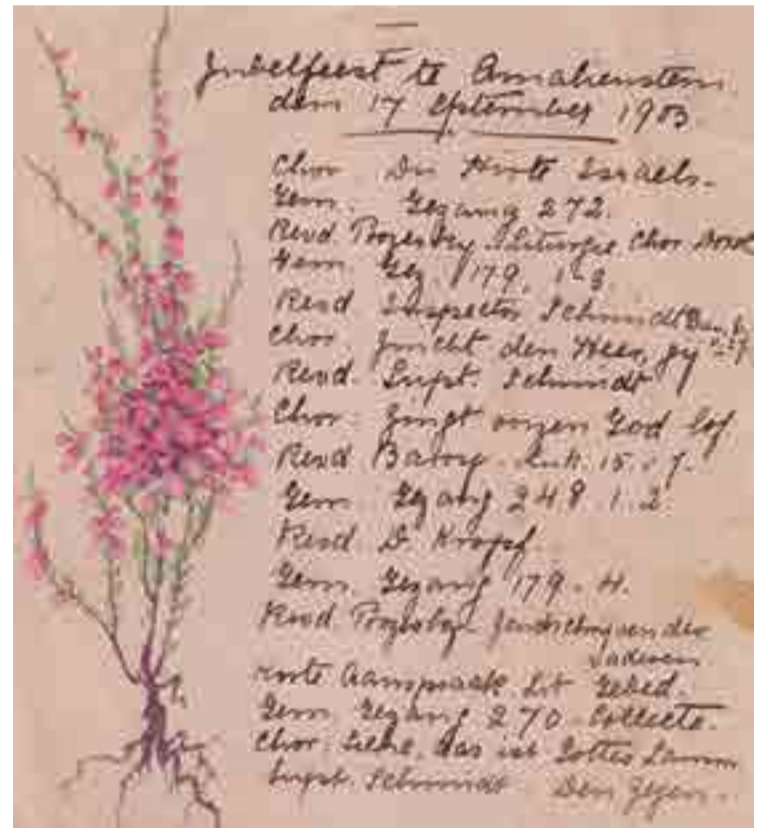 Jubelfeest te Amalienstein
dem 17 September 1903
Chor Du Hirte Israels.
Gem. Gezang 272.
Revd Prozesky Liturgie. Chor
Gem Gez. 179, 1-3.
Revd Inspector Schmidt
Chor Juicht den Heer, gy
Revd. Supt. Schmidt
Chor: Zingt onzen God lof
Revd Baton Luk. 15. 7.
Gem. Gezang 248. 1. 2.
Revd. D. Kropf.
Gem. Gezang 179. 4.
Revd Prozesky. der
Aanspraak. Lit Gebed.
Gem. Gezang 270. Collecte.
Chor: Siehe, das ist Gottes Lamm
Supt. Schmidt Den Zegen.